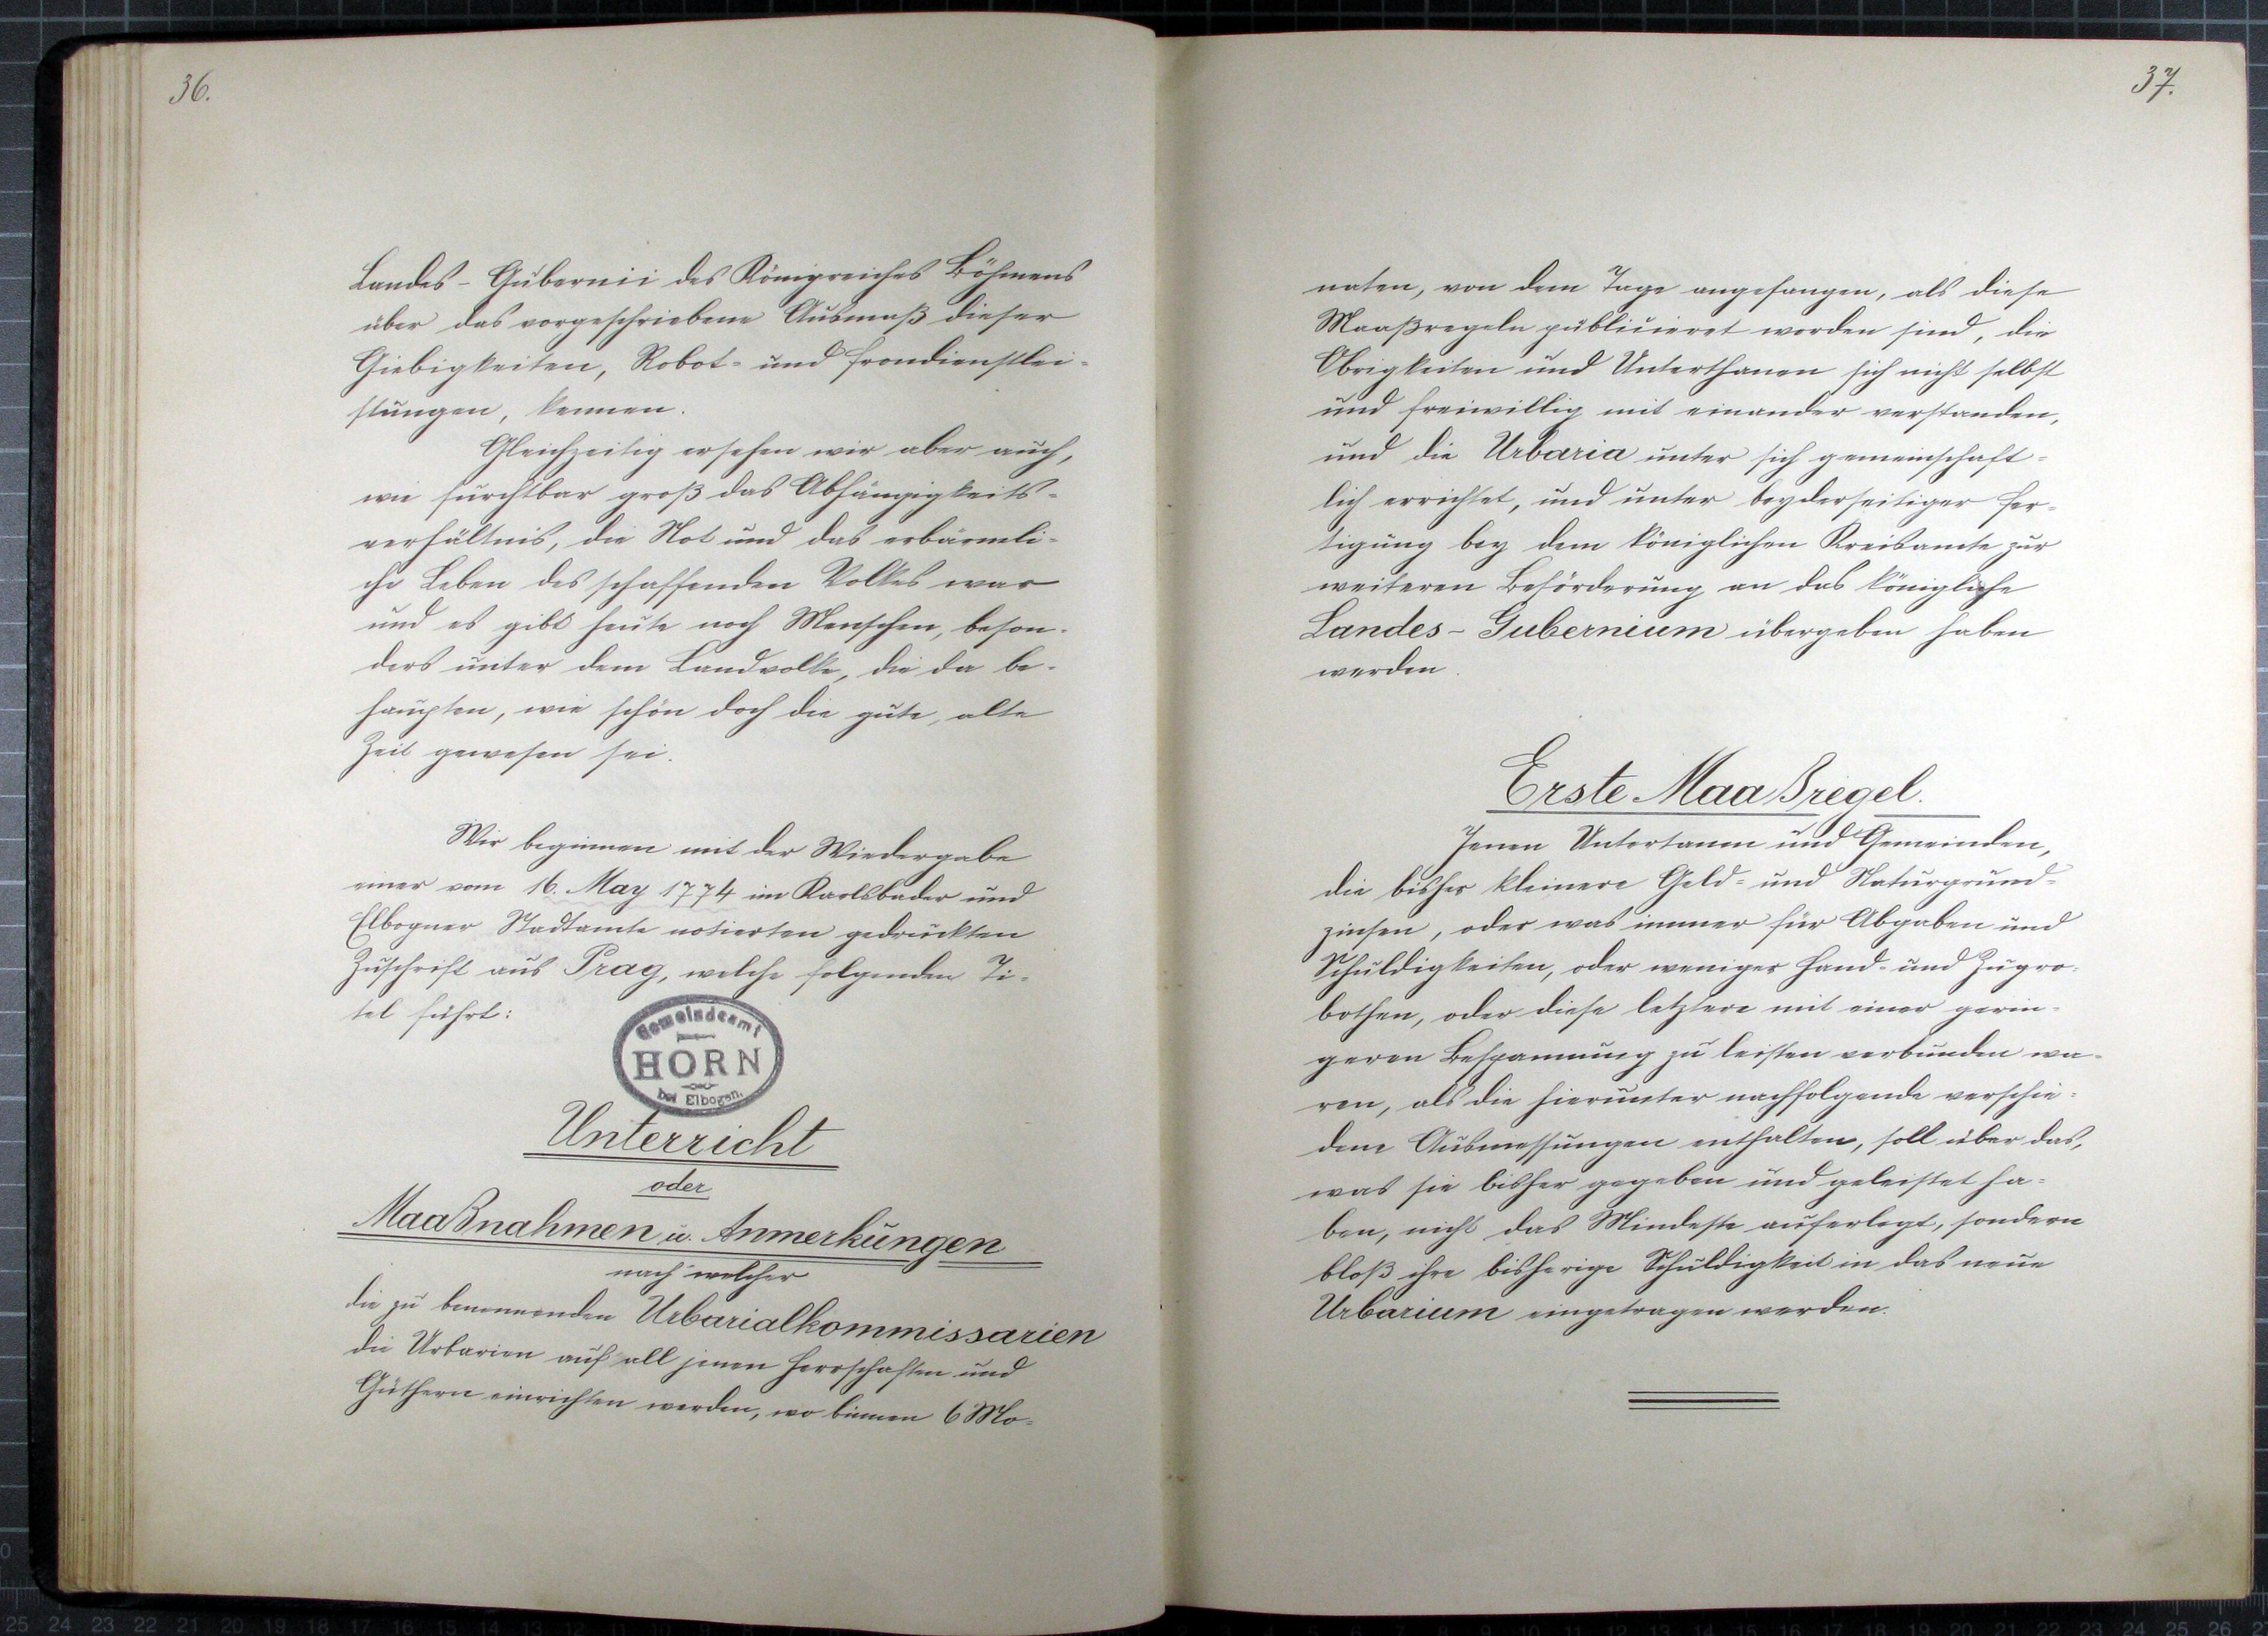 36.
Landes-Gubernii des Königreiches Böhmens
über das vorgeschriebene Ausmaß dieser
Giebigkeiten, Robot- und Frondienstlei-
stungen, kennen.
Gleichzeitig ersehen wir aber auch,
wie furchtbar groß das Abhängigkeits-
verhältnis, die Not und das erbärmli-
che Leben des schaffenden Volkes war
und es gibt heute noch Menschen, beson-
ders unter dem Landvolke, die da be-
haupten, wie schön doch die gute, alte
Zeit gewesen sei.
Wir beginnen mit der Wiedergabe
einer vom 16. May 1774 im Karlsbader und
Elbogner Stadtamte notierten gedruckten
Zuschrift aus Prag, welche folgenden Ti-
tel führt:
Gemeindeamt
HORN
bei Elbogen.
Unterricht
oder
Maaßnahmen u. Anmerkungen
nach welcher
die zu benennenden Urbarialkommissarien
die Urbarien auf all jenen Herrschaften und
Güthern einrichten werden, wo binnen 6 Mo-
37.
naten, von dem Tage angefangen, als diese
Maaßregeln publicieret worden sind, die
Obrigkeiten und Unterthanen sich nicht selbst
und freiwillig mit einander verstanden,
und die Urbaria unter sich gemeinschaft-
lich errichtet, und unter beyderseitiger Fer-
tigung bey dem königlichen Kreisamte zur
weiteren Beförderung an das königliche
Landes-Gubernium übergeben haben
werden.
Erste Maaßregel.
Jenen Untertanen und Gemeinden,
die bisher kleinere Geld- und Naturgrund-
zinsen, oder was immer für Abgaben und
Schuldigkeiten, oder weniger Hand- und Zugro-
bothen, oder diese letztere mit einer gerin-
geren Bespannung zu leisten verbunden wa-
ren, als die hierunter nachfolgende verschie-
dene Ausmessungen enthalten, soll über das,
was sie bisher gegeben und geleistet ha-
ben, nicht das Mindeste auferlegt, sondern
bloß ihre bisherige Schuldigkeit in das neue
Urbarium eingetragen werden.